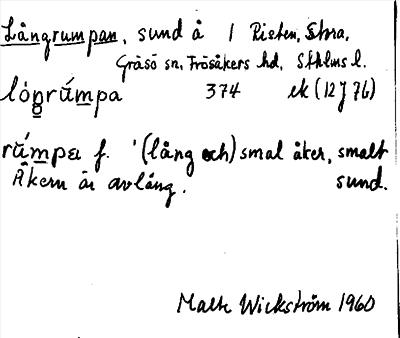 Långrumpan, sund å / Risten, Stora,
Gräsö sn, Frösåkers hd, Sthlms l.
lòŋrú̄mpa 374 ek (12J76)
rú̄mpa f. '(lång och) smal åker, smalt
Åkern är avlång. sund.
Malte Wickström 1960